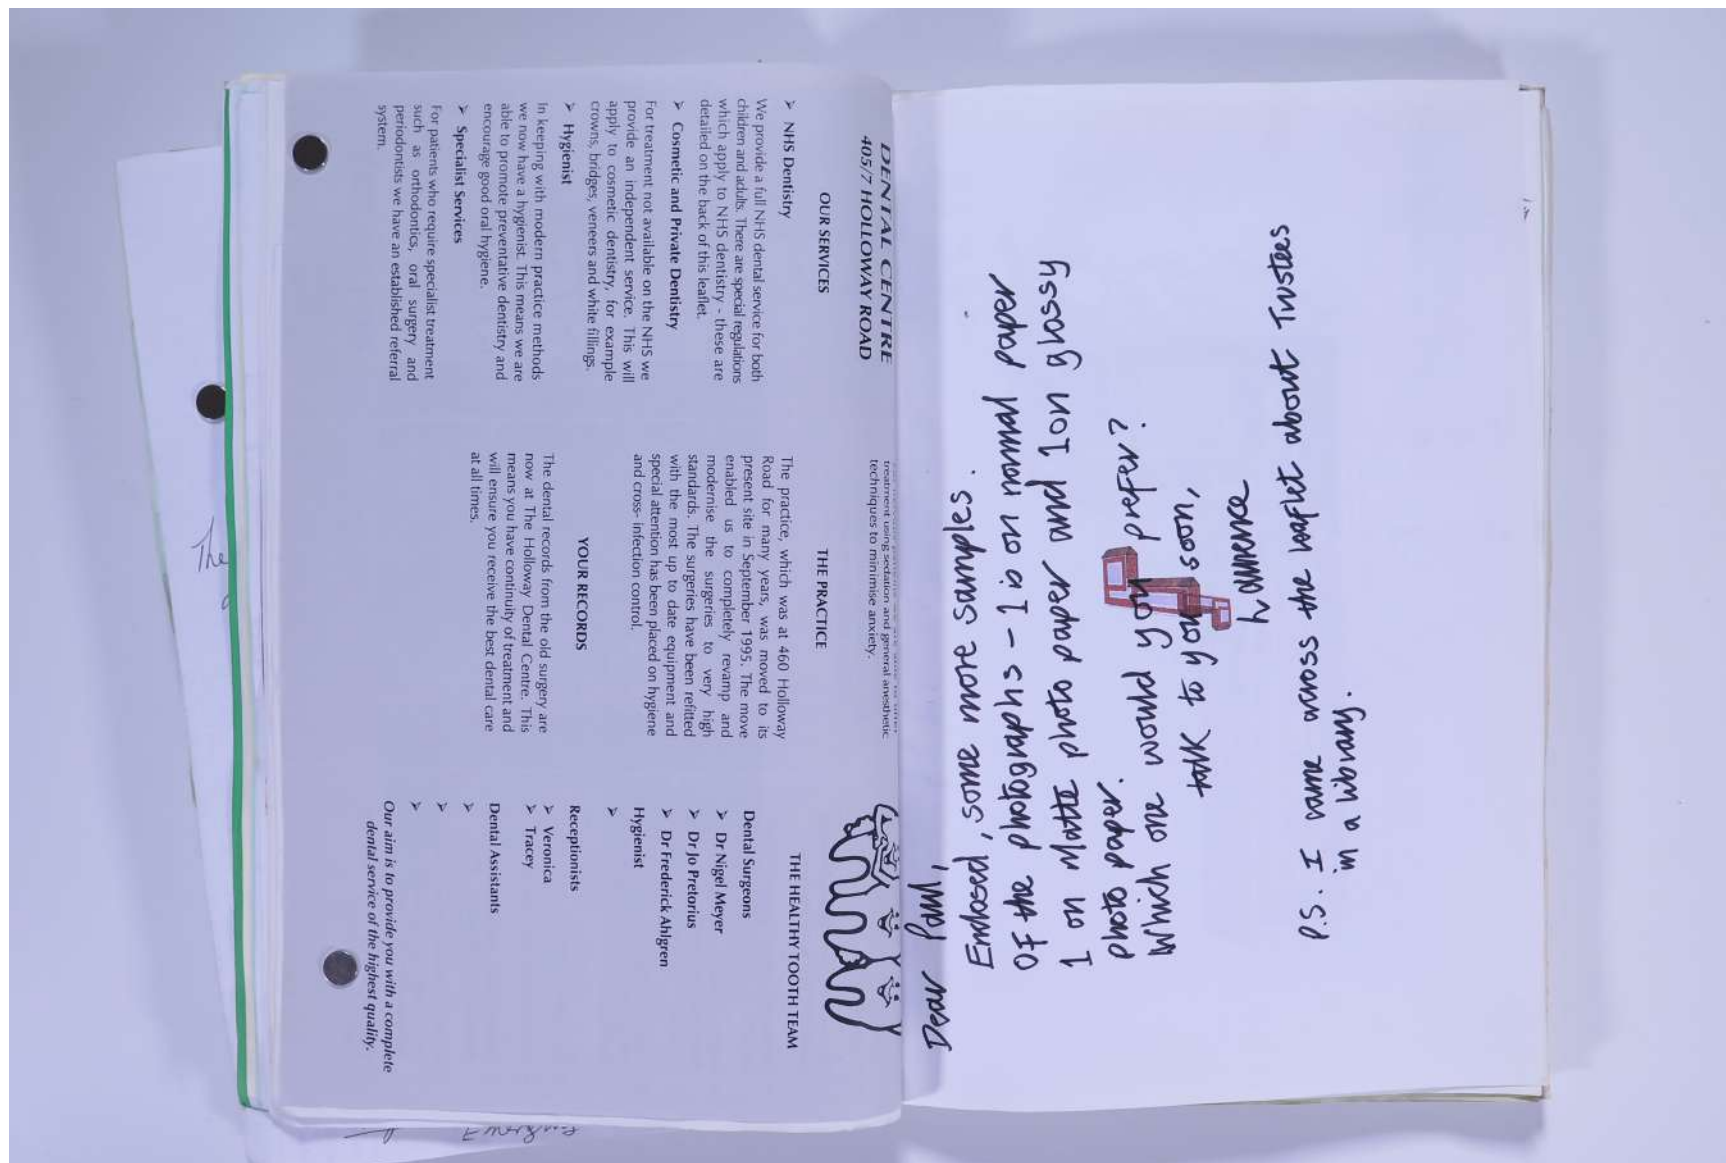 DENTAL CENTRE
405/7 HOLLOWAY ROAD
OUR SERVICES
➢ NHS Dentistry
We provide a full NHS dental service for both
children and adults. There are special regulations
which apply to NHS dentistry - these are
detailed on the back of this leaflet.
➢ Cosmetic and Private Dentistry
For treatment not available on the NHS we
provide an independent service. This will
apply to cosmetic dentistry, for example
crowns, bridges, veneers and white fillings.
➢ Hygienist
In keeping with modern practice methods
we now have a hygienist. This means we are
able to promote preventative dentistry and
encourage good oral hygiene.
➢ Specialist Services
For patients who require specialist treatment
such as orthodontics, oral surgery and
periodontists we have an established referral
system.
treatment using sedation and general anesthetic
techniques to minimise anxiety.
THE PRACTICE
The practice, which was at 460 Holloway
Road for many years, was moved to its
present site in September 1995. The move
enabled us to completely revamp and
modernise the surgeries to very high
standards. The surgeries have been refitted
with the most up to date equipment and
special attention has been placed on hygiene
and cross- infection control.
YOUR RECORDS
The dental records from the old surgery are
now at The Holloway Dental Centre. This
means you have continuity of treatment and
will ensure you receive the best dental care
at all times.
THE HEALTHY TOOTH TEAM
Dental Surgeons
➢ Dr Nigel Meyer
➢ Dr Jo Pretorius
➢ Dr Frederick Ahlgren
Hygienist
➢
Receptionists
➢ Veronica
➢ Tracey
Dental Assistants
➢
➢
➢
Our aim is to provide you with a complete
dental service of the highest quality.
Dear Paul,
Enclosed, some more samples.
Of the photographs - 1 is on normal paper
1 on Matte photo paper and 1 on glossy
photo paper.
Which one would you prefer?
talk to you soon,
Lawrence
P.S. I came across the leaflet about Trustees
in a library.
The